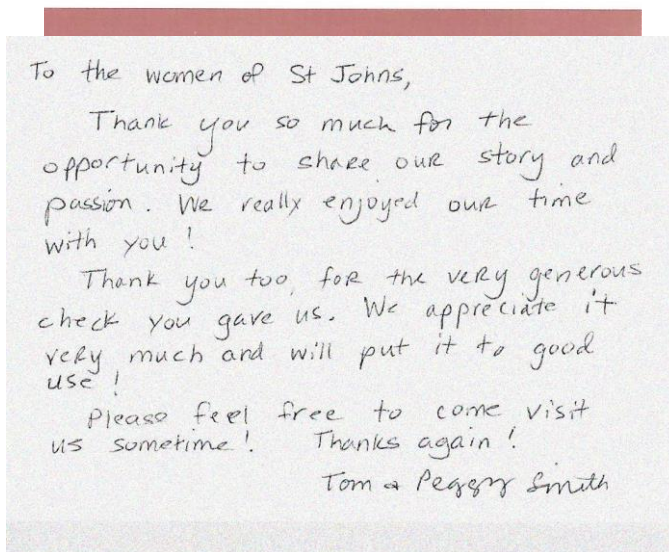 To the women of St Johns,
Thank you so much for the
opportunity to share our story and
passion. We really enjoyed our time
with you!
Thank you too, for the very generous
check you gave us. We appreciate it
very much and will put it to good
use!
Please feel free to come visit
us sometime! Thanks again!
Tom & Peggy Smith